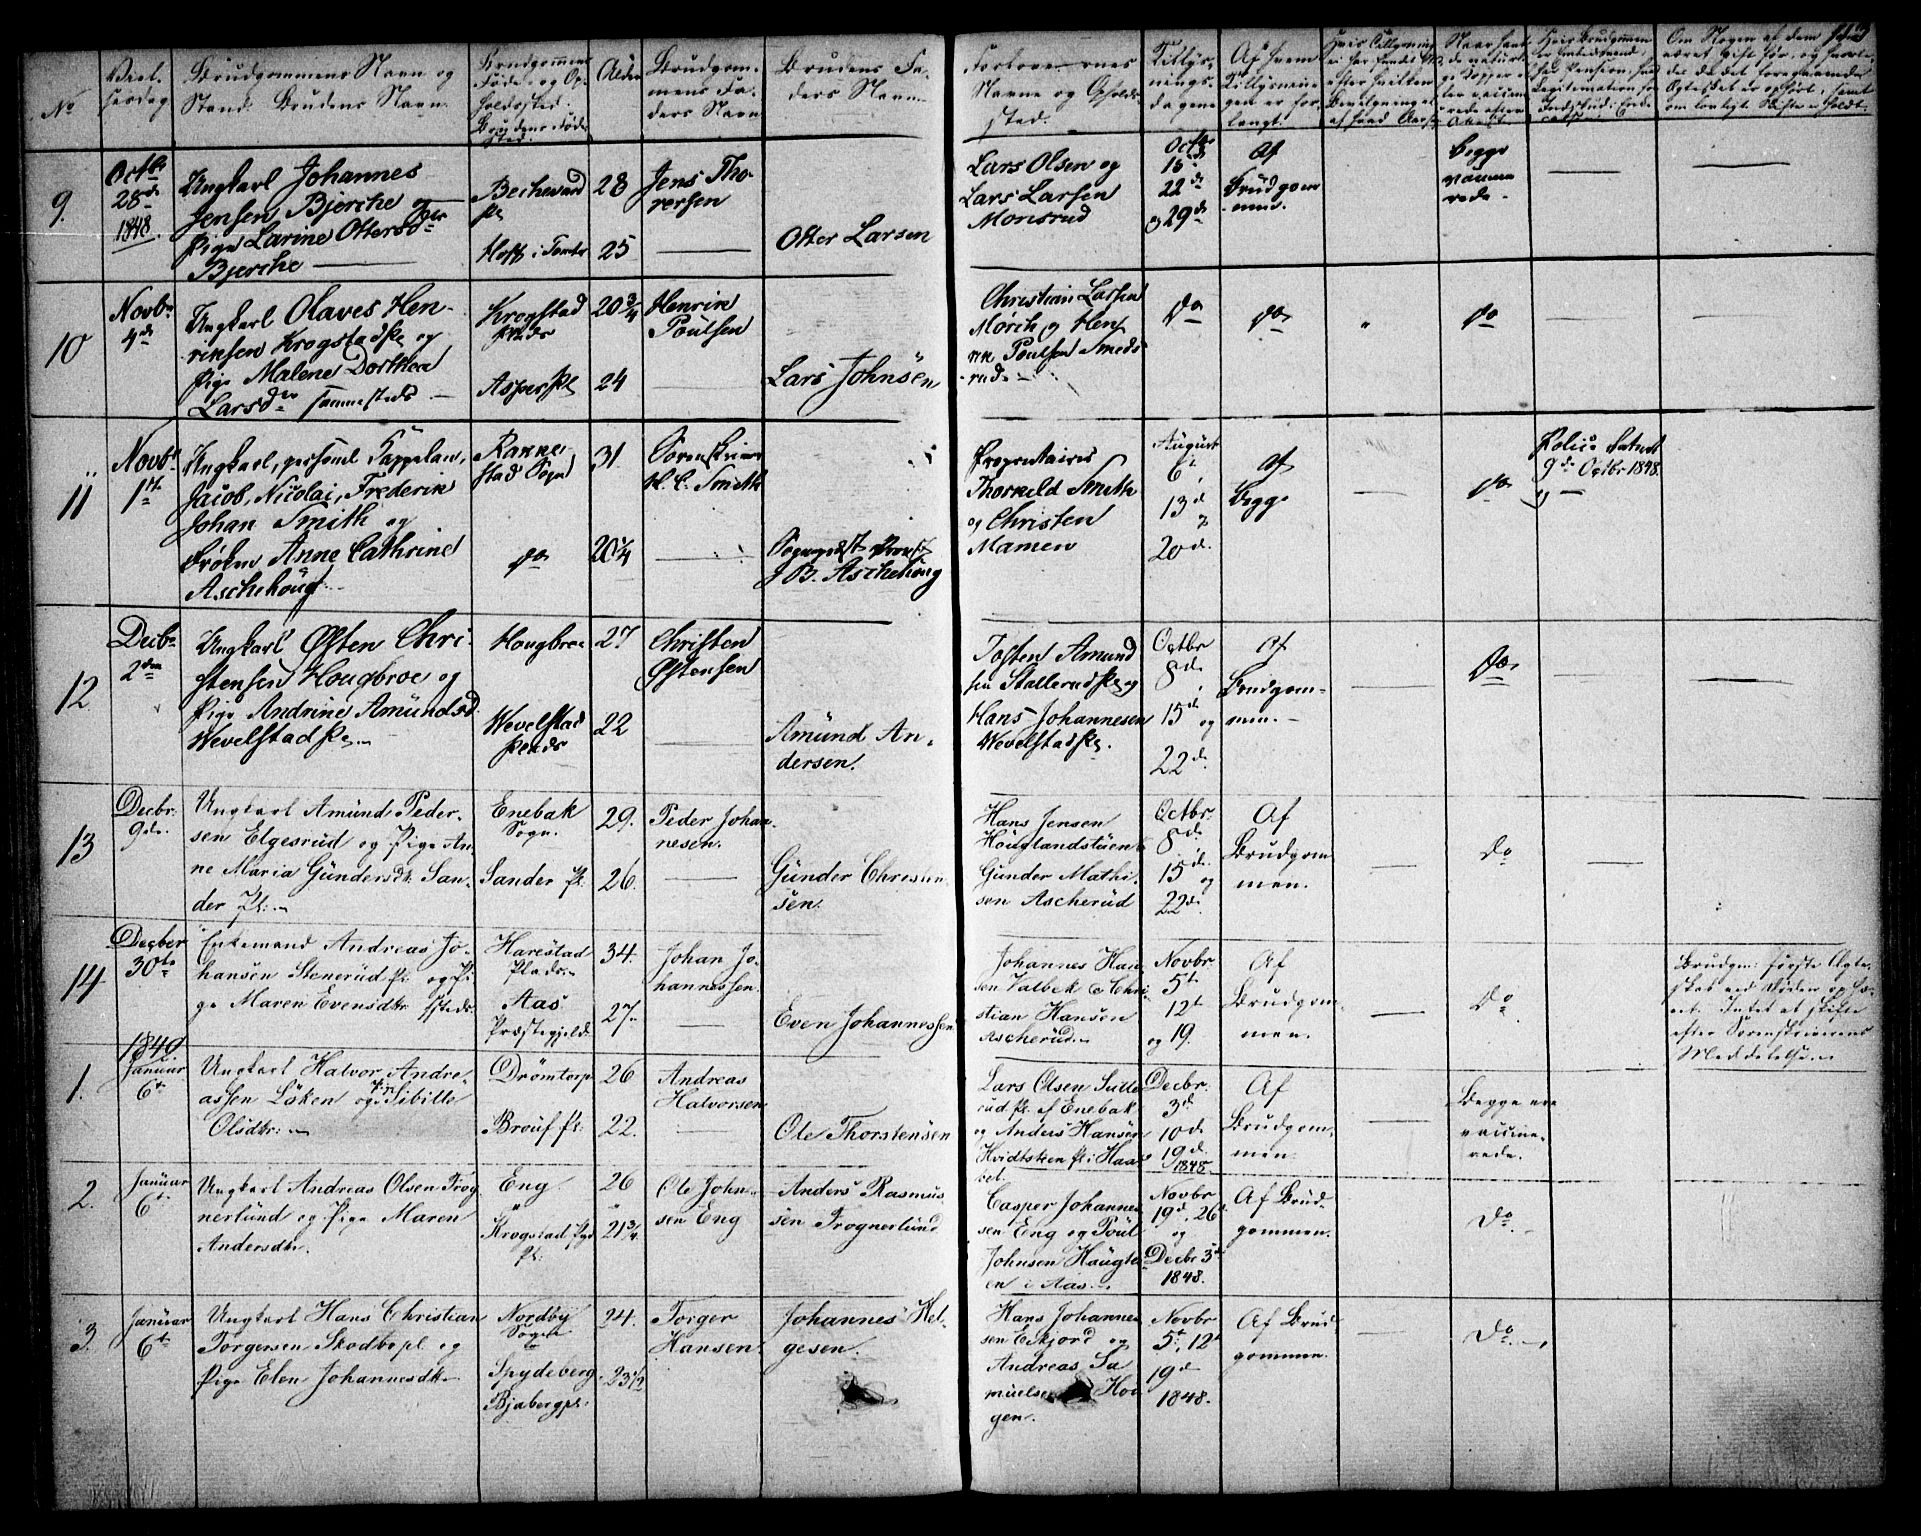 No
Viel-
sesdag.
Brudgommens Navn og
Stand. Brudens Navn.
Brudgommens
Føde- og Op-
holdssted.
Brudens Føde-
sted.
Alder
Brudgom-
mens Fa-
ders Navn
Brudens Fa-
ders Navn
Forloverernes
Navne og Opholds-
sted.
Tillys-
nings-
dagene
Af hvem
Tillysnin-
gen er for-
langt.
9.
Octbr
28de
1848.
Ungkarl Johannes
Jensen Bjerche og
Pige Larine Ottersdr
Bjerche
28
25
Jens Tho-
rersen
Otter Larsen
Lars Olsen og
Lars Larsen
Monsrud
Octbr
15de
22de
og 29de
Af
Brudgom
men.
begge
vaccine-
rede.
10
Novbr
4de
Ungkarl Olaves Hen-
riksen Krogstad Pl og
Pige Malene Dorthea
Larsdr sammesteds
Krogstad
Plads
Asper Pl
20 3/4
24
Henrik
Poulsen
Lars Johnsen
Christian Larsen
Mörch og Hen
rik Poulsen Smeds
rud.
Do
do
do
11
Novbr
1ste
Ungkarl, personel Kappelan,
Jacob, Nicolai, Frederik
Johan Smith og
Frøken Anne Cathrine
Aschehoug.
Rakke-
stad Sogn
do
31
20 1/4
Sorenskriver
H. C. Smith
Sogneprest Provst
J B. Aschehoug
Proprietairer
Thorkild Smith
og Christen
Mamen
August
6te
13d
20d.
af
begge
do
9de Octbr 1848.
12
Decbr
2den
Ungkarl Østen Chri-
stensen Hougbroe og
Pige Andrine Amundsd.
Wevelstad Pl.
Hougbroe
Wevelstad
Plads
27
22
Christen
Østensen
Amund An-
dersen.
Tosten Amund
sen Stallerud Pl og
Hans Johannesen
Wevelstad Pl.
Octbr
8de
15de og
22de
Af
Brudgom-
men.
Do
13
Decbr.
9de.
Ungkarl Amund Peder-
sen Elgesrud og Pige An-
ne Maria Gundersdtr. San-
der Pl:
Enebak
Sogn.
Sander Pl.
29.
26.
Peder Johan-
nesen.
Gunder Christen-
sen.
Hans Jensen
Houglandstuen
Gunder Mathi-
sen Ascherud
Octbr.
8de.
15de. og
22de.
Af
Brudgom
men.
Do
14
Decber
30te
Enkemand Andreas Jo-
hansen Stenerud Pl. og Pi-
ge Maren Evensdtr. ssteds
Harestad
Plads.
Aas
Præstegjeld.
34.
27.
Johan Jo-
hannessen.
Even Johannessen
Johannes Han-
sen Valbek & Chri-
stian Hansen
Ascherud.
Novbr.
5te
12te
og 19.
Af
Brudgom
men.
Do
Brudgm: første Ægte-
skab ved Døden ophæ-
vet. Intet at skifte
efter Sorenskriverens
Meddelelse.
1849
1.
Januar
6te
Ungkarl Halvor Andre-
assen Löken og Pige Sibille
Olsdtr:
Drömtorp
Brouf Pl.
26
22.
Andreas
Halvorsen
Ole Thorstensen
Lars Olsen Sutte
rud Pl. af Enebak
og Anders Hansen
Hvidtsteen Pl: Haa-
vet.
Decbr.
3de
10de
19de.
1848.
Af
Brudgom-
men.
Begge ere
vaccine-
rede.
2.
Januar
6te
Ungkarl Andreas Olsen Frog
nerlund og Pige Maren
Andersdtr.
Eng
Krogstad Prgd
Pl:
26
21 3/4
Ole John-
sen Eng
Anders Rasmus
sen Frognerlund
Casper Johannes
sen Eng og Poul
Johnsen Haugte
en i Aas.
Novbr
19de, 26de
og
Decbr 3de
1848.
Af Brud-
gommen.
Do.
3.
Januar
6te
Ungkarl Hans Christian
Torgersen Skodbo pl og
Pige Elen Johannesdtr
Nordby
Sogn
Spydeberg.
Bjabergpl.
24.
23 1/2
Torger
Hansen.
Johannes Hel-
gesen.
Hans Johannes
sen Eskjord og
Andreas Sa
muelsen Hou
gen.
Novbr
5te, 12te
19de
1848.
Af Brud
gommen.
Do.